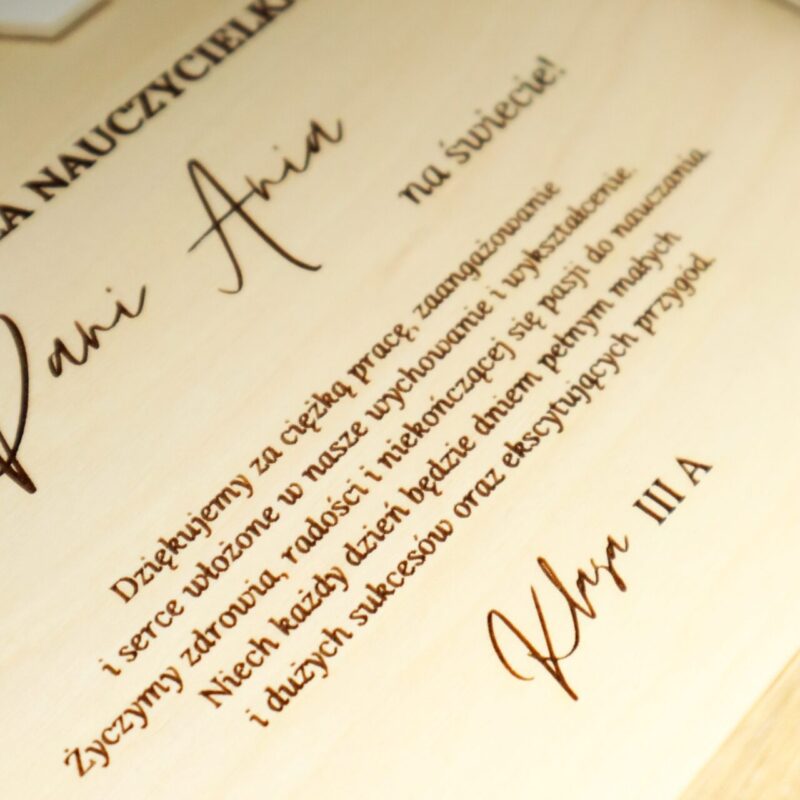 NAUCZYCIELK
Pani Ania
na świecie!
Dziękujemy za ciężką pracę, zaangażowanie
i serce włożone w nasze wychowanie i wykształcenie.
Życzymy zdrowia, radości i niekończącej się pasji do nauczania.
Niech każdy dzień będzie dniem pełnym małych
i dużych sukcesów oraz ekscytujących przygód.
Klasa III A